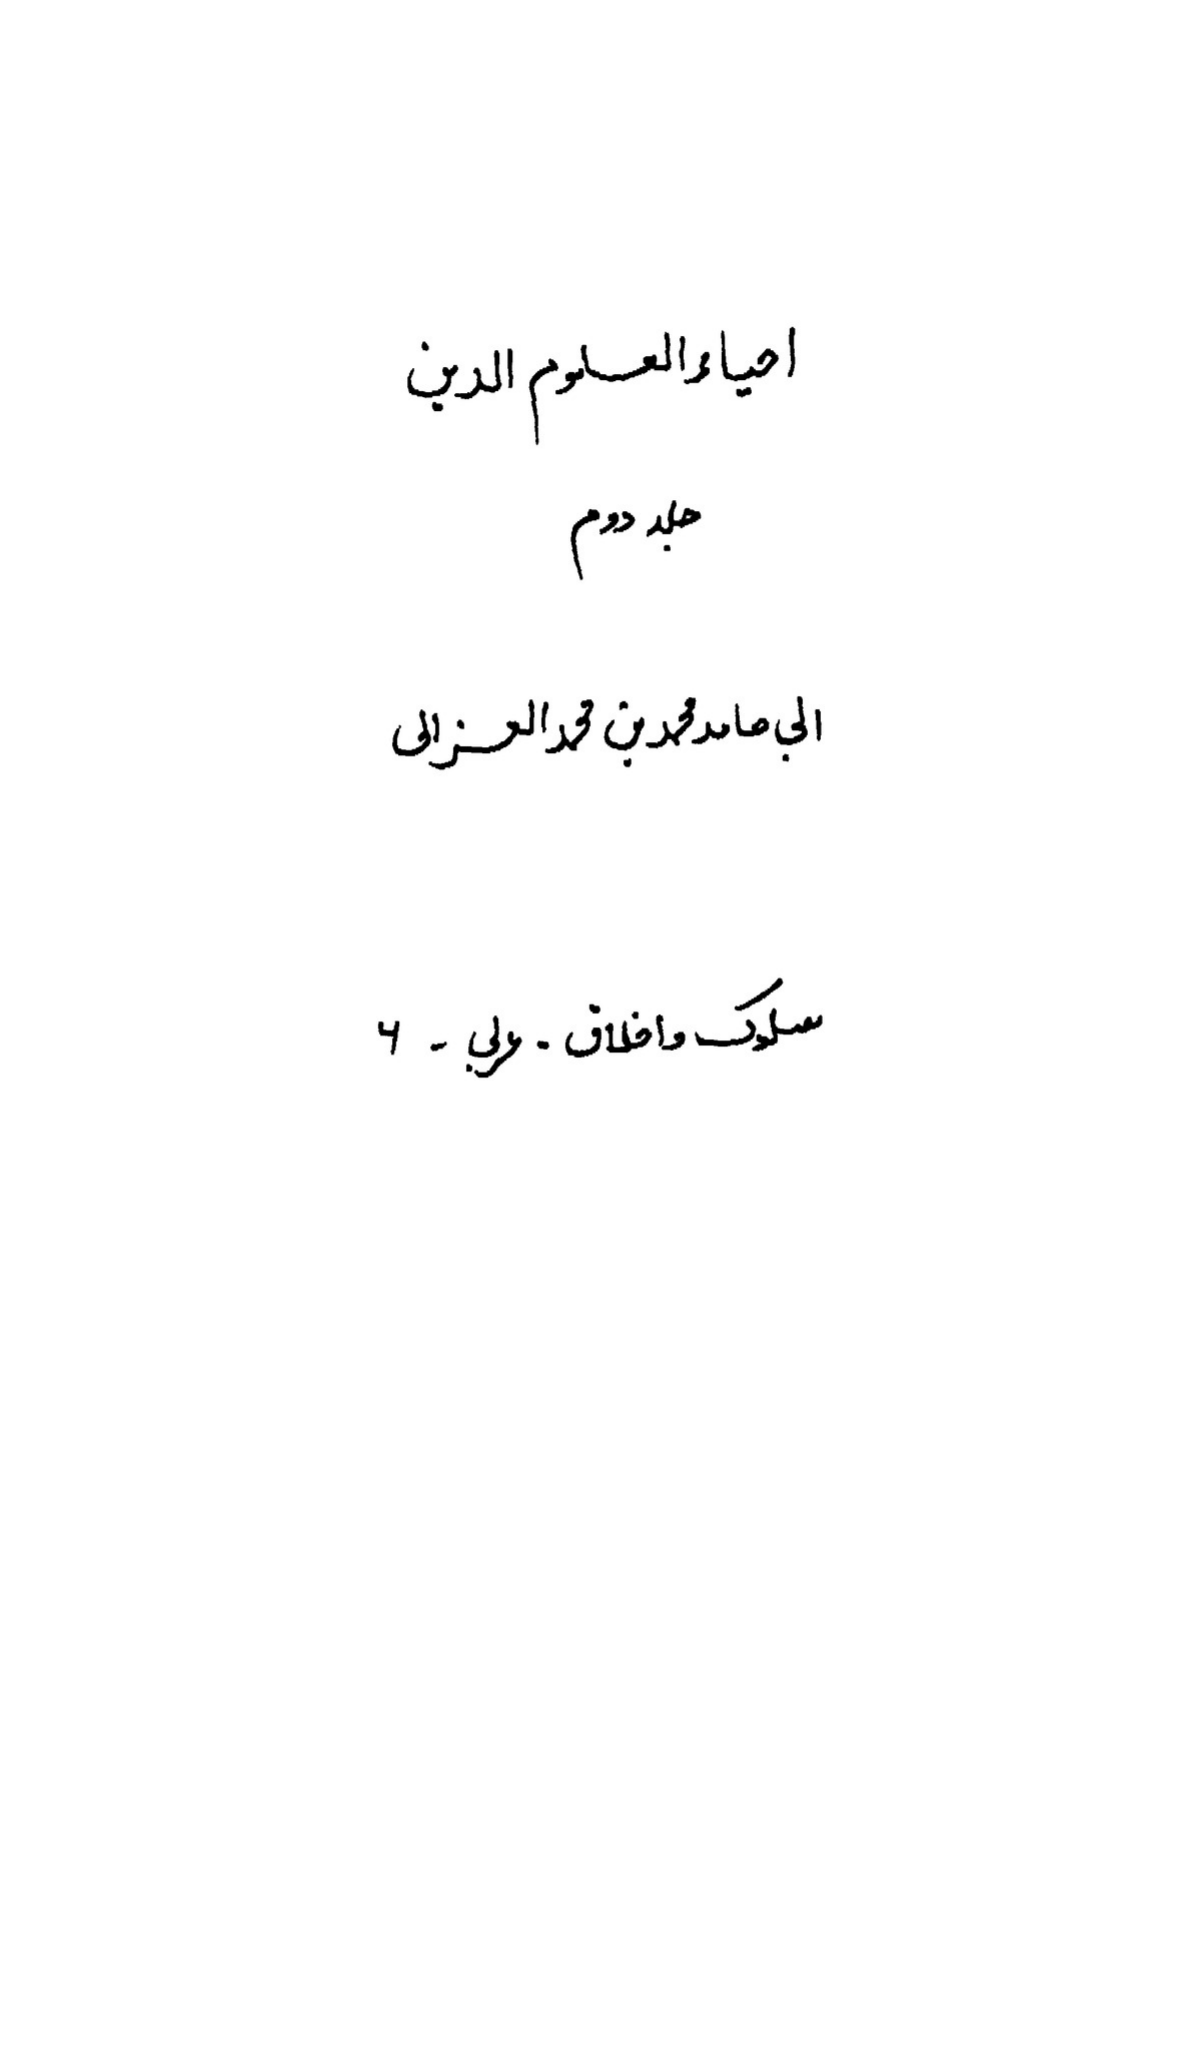 احیاء العلوم الدین
جلد دوم
ابي حامد محمد بن محمد الغزالی
سلوک واخلاق - عربي - ۶